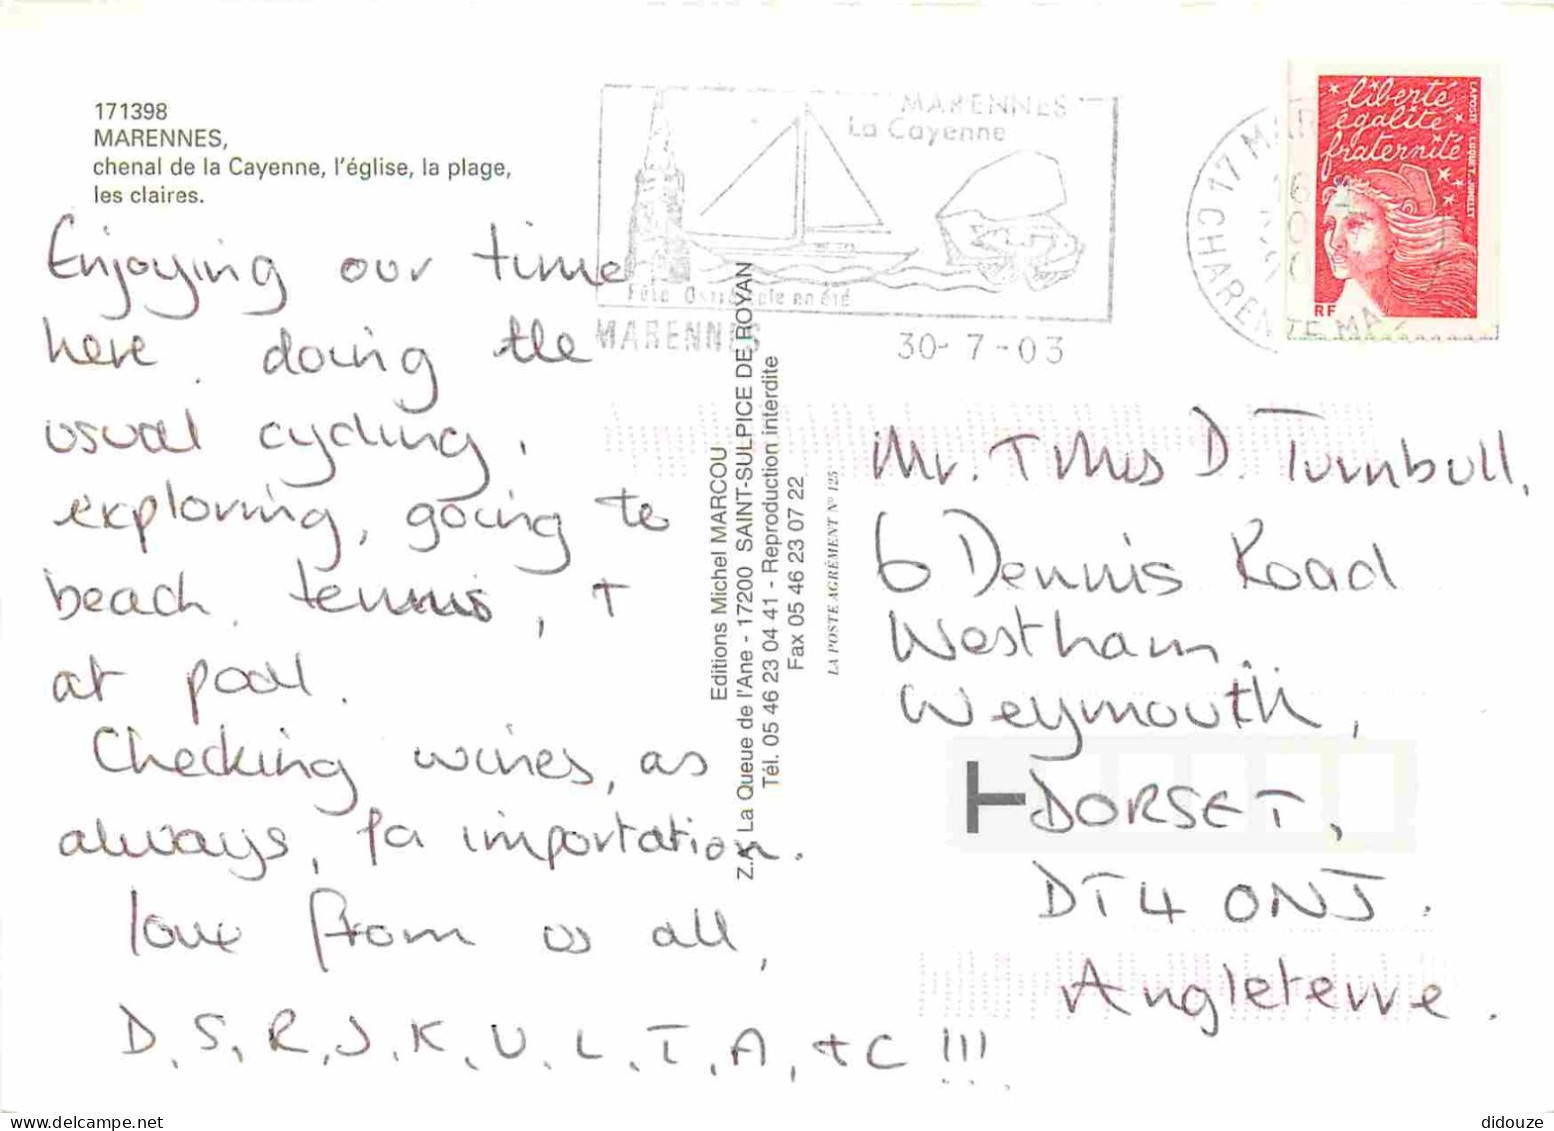 171398
MARENNES,
chenal de la Cayenne, l'église, la plage,
les claires.
Enjoying our time
here doing the
usual cycling,
exploring, going to
beach, tennis, +
at pool.
Checking wines, as
always, for importation.
love from us all,
D, S, R, J, K, U, L, T, A, + C !!!
MARENNES
La Cayenne
Fête en été
MARENNES
30-7-03
17 MAR
CHARENTE MA
liberté
égalité
fraternité
LA POSTE LUQUET. JUMELET
RF
Editions Michel MARCOU
Z.A. La Queue de l'Ane - 17200 SAINT-SULPICE DE ROYAN
Tél. 05 46 23 04 41 - Reproduction interdite
Fax 05 46 23 07 22
LA POSTE AGRÉMENT N° 125
Mr. + Mrs D. Turnbull,
6 Dennis Road
Westham.
Weymouth,
DORSET,
DT4 0NJ.
Angleterre.
didouze